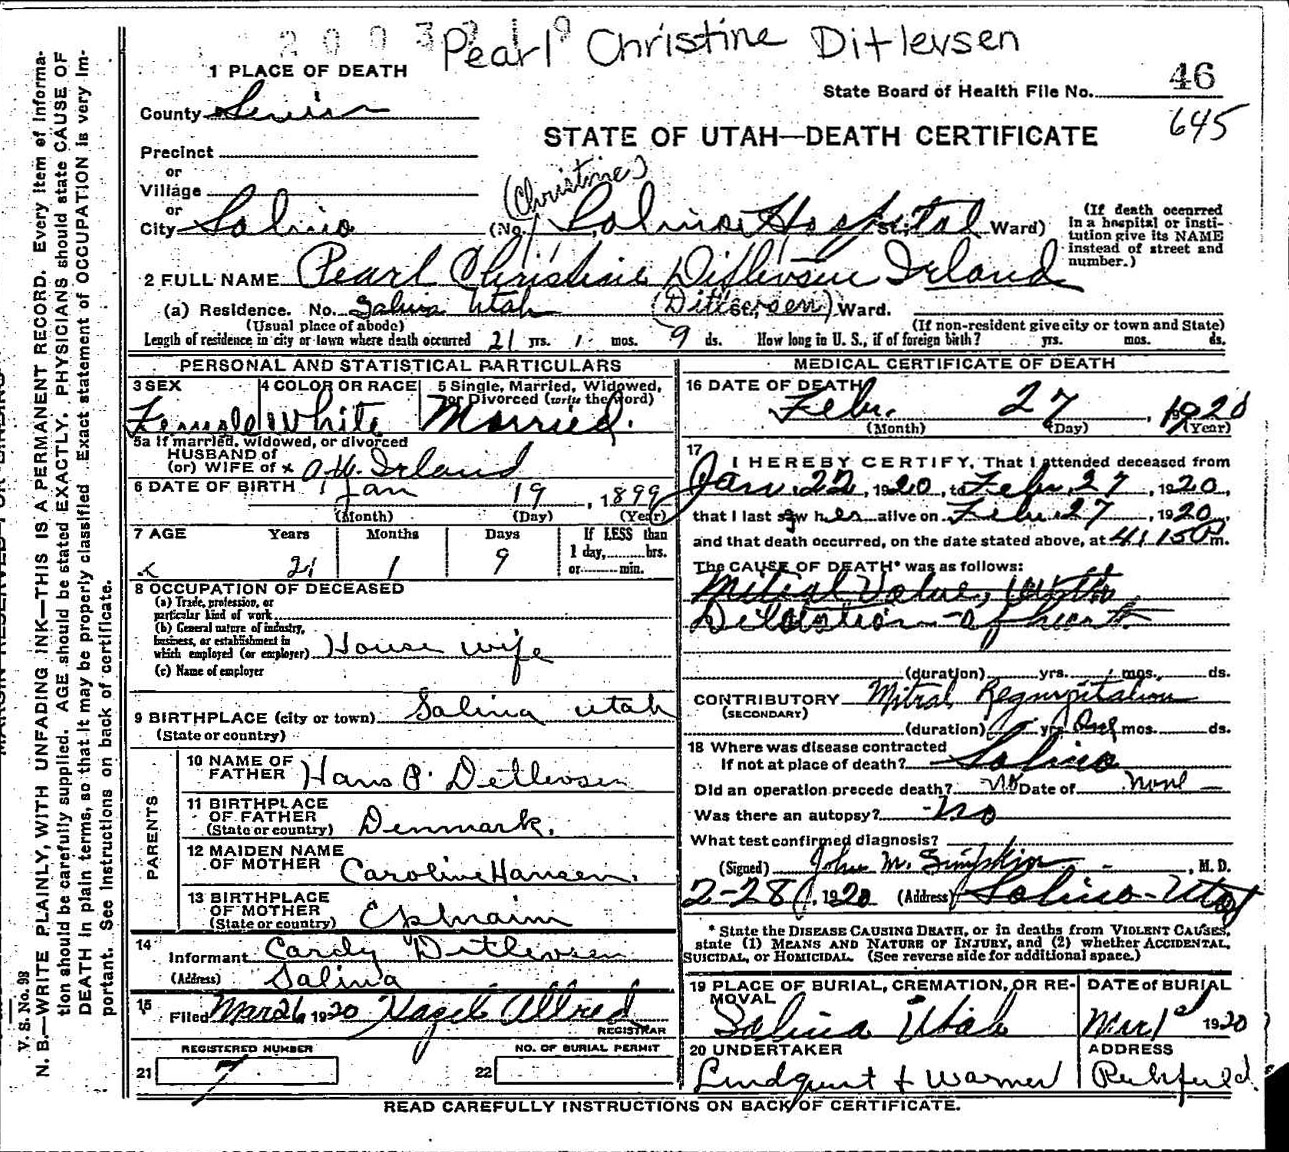 Pearl Christine Ditlevsen
1 PLACE OF DEATH
State Board of Health File No. 46
645
County Sevier
STATE OF UTAH—DEATH CERTIFICATE
Precinct
or
Village
(Christine)
or
City Salina (No. Salina Hospital St.; Ward)
(If death occurred in a hospital or institution give its NAME instead of street and number.)
2 FULL NAME Pearl Christine Ditlevsen Irland
(a) Residence. No. Salina Utah (Ditlevsen) St., Ward.
(Usual place of abode) (If non-resident give city or town and State)
Length of residence in city or town where death occurred 21 yrs. 1 mos. 9 ds. How long in U. S., if of foreign birth? yrs. mos. ds.
PERSONAL AND STATISTICAL PARTICULARS
3 SEX 4 COLOR OR RACE 5 Single, Married, Widowed, or Divorced (write the word)
Female White Married.
5a If married, widowed, or divorced
HUSBAND of
(or) WIFE of x A.H. Irland
6 DATE OF BIRTH Jan 19, 1899
(Month) (Day) (Year)
7 AGE Years Months Days If LESS than
1 day, hrs.
or min.
21 1 9
8 OCCUPATION OF DECEASED
(a) Trade, profession, or
particular kind of work
(b) General nature of industry,
business, or establishment in
which employed (or employer) House wife
(c) Name of employer
9 BIRTHPLACE (city or town) Salina Utah
(State or country)
PARENTS
10 NAME OF FATHER Hans P. Detlevsen
11 BIRTHPLACE OF FATHER (State or country) Denmark.
12 MAIDEN NAME OF MOTHER Caroline Hansen.
13 BIRTHPLACE OF MOTHER (State or country) Ephraim
14 Informant Cardy Ditlevsen
(Address) Salina
15 Filed Mar 26 1920 Hazel Allred
REGISTRAR
REGISTERED NUMBER NO. OF BURIAL PERMIT
21 7 22
MEDICAL CERTIFICATE OF DEATH
16 DATE OF DEATH Feb. 27, 1920
(Month) (Day) (Year)
17
I HEREBY CERTIFY, That I attended deceased from
Jan. 22, 1920, to Feb. 27, 1920,
that I last saw her alive on Feb. 27, 1920,
and that death occurred, on the date stated above, at 4:15 P m.
The CAUSE OF DEATH* was as follows:
Mitral Valve, with
Dilatation of heart
(duration) yrs. mos. ds.
CONTRIBUTORY Mitral Regurgitation
(SECONDARY)
(duration) yrs. mos. ds.
18 Where was disease contracted
If not at place of death? Salina
Did an operation precede death? No Date of None
Was there an autopsy? No
What test confirmed diagnosis?
(Signed) John M. Simpkin, M. D.
2-28, 1920 (Address) Salina-Utah
* State the DISEASE CAUSING DEATH, or in deaths from VIOLENT CAUSES,
state (1) MEANS AND NATURE OF INJURY, and (2) whether ACCIDENTAL,
SUICIDAL, or HOMICIDAL. (See reverse side for additional space.)
19 PLACE OF BURIAL, CREMATION, OR REMOVAL DATE of BURIAL
Salina Utah Mar 1st 1920
20 UNDERTAKER ADDRESS
Lindquist & Warner Richfield.
READ CAREFULLY INSTRUCTIONS ON BACK OF CERTIFICATE.
V. S. No. 98
N. B.—WRITE PLAINLY, WITH UNFADING INK—THIS IS A PERMANENT RECORD. Every item of information
should be carefully supplied. AGE should be stated EXACTLY. PHYSICIANS should state CAUSE OF
DEATH in plain terms, so that it may be properly classified. Exact statement of OCCUPATION is very important.
See Instructions on back of certificate.